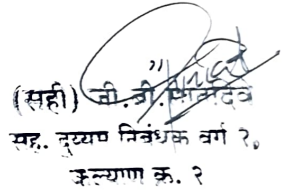 (सही) व्ही.बी.
सह. दुय्यम निबंधक वर्ग २,
कल्याण क्र. २